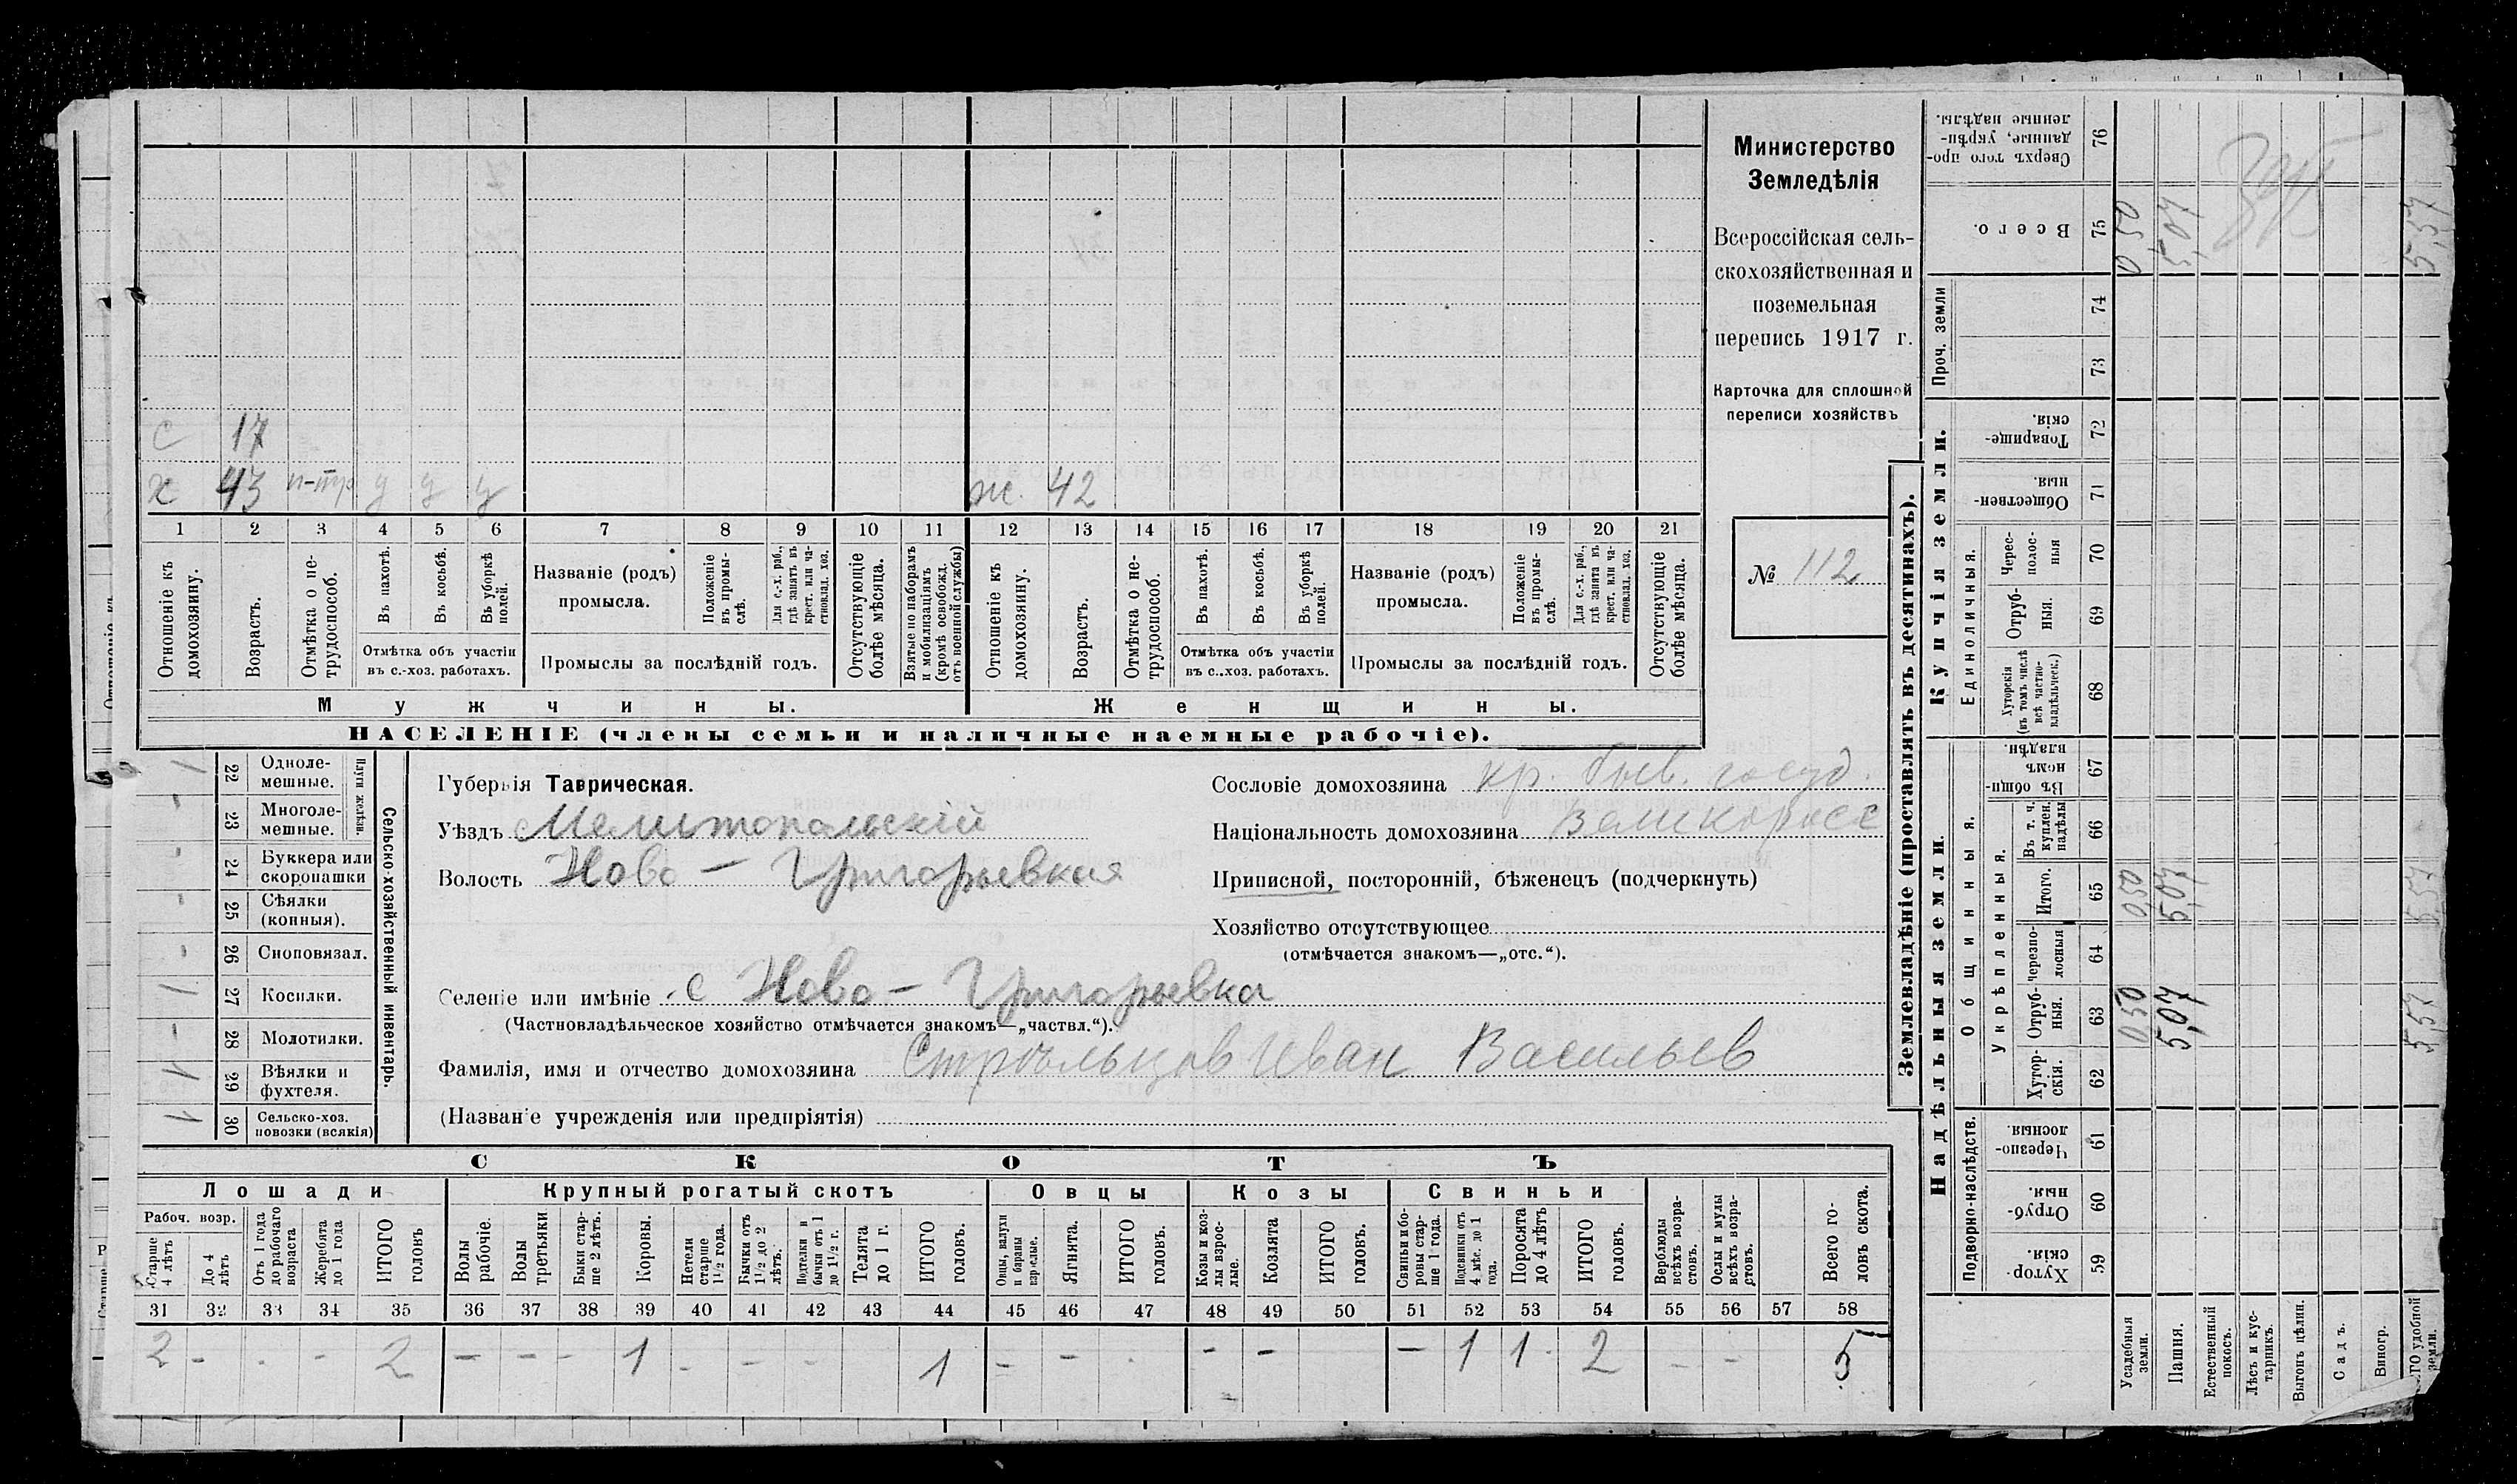 Министерство
Земледѣлія
Всероссійская сель-
скохозяйственная и
поземельная
перепись 1917 г.
Карточка для сплошной
переписи хозяйствъ
№ 112
с 17
х 43 н-тр у у у ж. 42
1 2 3 4 5 6 7 8 9 10 11 12 13 14 15 16 17 18 19 20 21
Отношеніе къ домохозяину.
Возрастъ.
Отмѣтка о не-трудоспособ.
Въ пахотѣ.
Въ косьбѣ.
Въ уборкѣ полей.
Отмѣтка объ участіи
въ с.-хоз. работахъ.
Названіе (родъ)
промысла.
Положеніе въ промы-слѣ.
Для с.-х. раб., гдѣ занятъ въ крест. или ча-стновлад. хоз.
Промыслы за послѣдній годъ.
Отсутствующіе болѣе мѣсяца.
Взятые по наборамъ и мобилизаціямъ (кромѣ освобожд. отъ военной службы)
Отношеніе къ домохозяину.
Возрастъ.
Отмѣтка о не-трудоспособ.
Въ пахотѣ.
Въ косьбѣ.
Въ уборкѣ полей.
Отмѣтка объ участіи
въ с..хоз. работахъ.
Названіе (родъ)
промысла.
Положеніе въ промы-слѣ.
Для с.-х. раб., гдѣ занята въ крест. или ча-стновлад. хоз.
Промыслы за послѣдній годъ.
Отсутствующіе болѣе мѣсяца.
Мужчины. Женщины.
НАСЕЛЕНІЕ (члены семьи и наличные наемные рабочіе).
Сельско-хозяйственный инвентарь.
Плуги желѣзн.
1 22 Однолемешные.
- 23 Многолемешные.
- 24 Буккера или скоропашки
- 25 Сѣялки (конныя).
- 26 Сноповязал.
1 27 Косилки.
- 28 Молотилки.
1 29 Вѣялки и фухтеля.
1 30 Сельско-хоз. повозки (всякія)
Губернія Таврическая.
Уѣздъ Мелитопальскій
Волость Ново - Григорьевкая
Селеніе или имѣніе с Ново - Григорьевка
(Частновладѣльческое хозяйство отмѣчается знакомъ—„частвл.“).
Фамилія, имя и отчество домохозяина Стрѣльцов Иван Васильев
(Названіе учрежденія или предпріятія)
Сословіе домохозяина кр. быв. госуд.
Національность домохозяина великоросс
Приписной, посторонній, бѣженецъ (подчеркнуть)
Хозяйство отсутствующее
(отмѣчается знакомъ—„отс.“).
СКОТЪ
Лошади Крупный рогатый скотъ Овцы Козы Свиньи
Рабоч. возр.
Старше 4 лѣтъ
До 4 лѣтъ
Отъ 1 года до рабочаго возраста
Жеребята до 1 года
ИТОГО головъ
Волы рабочіе.
Волы третьяки
Быки стар-ше 2 лѣтъ.
Коровы.
Нетели старше 1 1/2 года.
Бычки отъ 1 1/2 до 2 лѣтъ.
Подтелки и бычки отъ 1 до 1 1/2 г.
Телята до 1 г.
ИТОГО головъ.
Овцы, валухи и бараны взрослые.
Ягнята.
ИТОГО головъ.
Козы и коз-лы взрос-лые.
Козлята
ИТОГО головъ.
Свиньи и бо-ровы стар-ше 1 года.
Подсвинки отъ 4 мѣс. до 1 года.
Поросята до 4 лѣтъ
ИТОГО головъ.
Верблюды всѣхъ возра-стовъ.
Ослы и мулы всѣхъ возра-стовъ.
Всего го-ловъ скота.
31 32 33 34 35 36 37 38 39 40 41 42 43 44 45 46 47 48 49 50 51 52 53 54 55 56 57 58
2 - - - 2 - - - 1 - - - 1 - - - - - 1 1 2 - - 5
Землевладѣніе (проставлять въ десятинахъ).
Надѣльныя земли. Купчія земли. Проч. земли
Подворно-наслѣдств.
Общинныя.
Укрѣпленныя.
Единоличныя.
59 Хутор-скія.
60 Отруб-ныя.
61 Черезпо-лосныя.
62 Хутор-скія.
63 Отруб-ныя. 0,50 5,07 5,57
64 черезпо-лосныя
65 Итого. 0,50 5,07 5,57
66 Въ т. ч. куплен. надѣлы
67 Въ общи-номъ владѣн.
68 Хуторскія (въ томъ числѣ всѣ частно-владѣльческ.)
69 Отруб-ныя.
70 Черес-полос-ныя
71 Обществен-ныя.
72 Товарище-скія.
73
74
75 Всего. 0 50 5,07 5,57
76 Сверхъ того про-данные, укрѣп-ленные надѣлы.
Усадебныя земли.
Пашня.
Естественный покосъ.
Лѣсъ и кус-тарникъ.
Выгонъ цѣлин.
Садъ.
Виногр.
ИТОГО удобной земли.